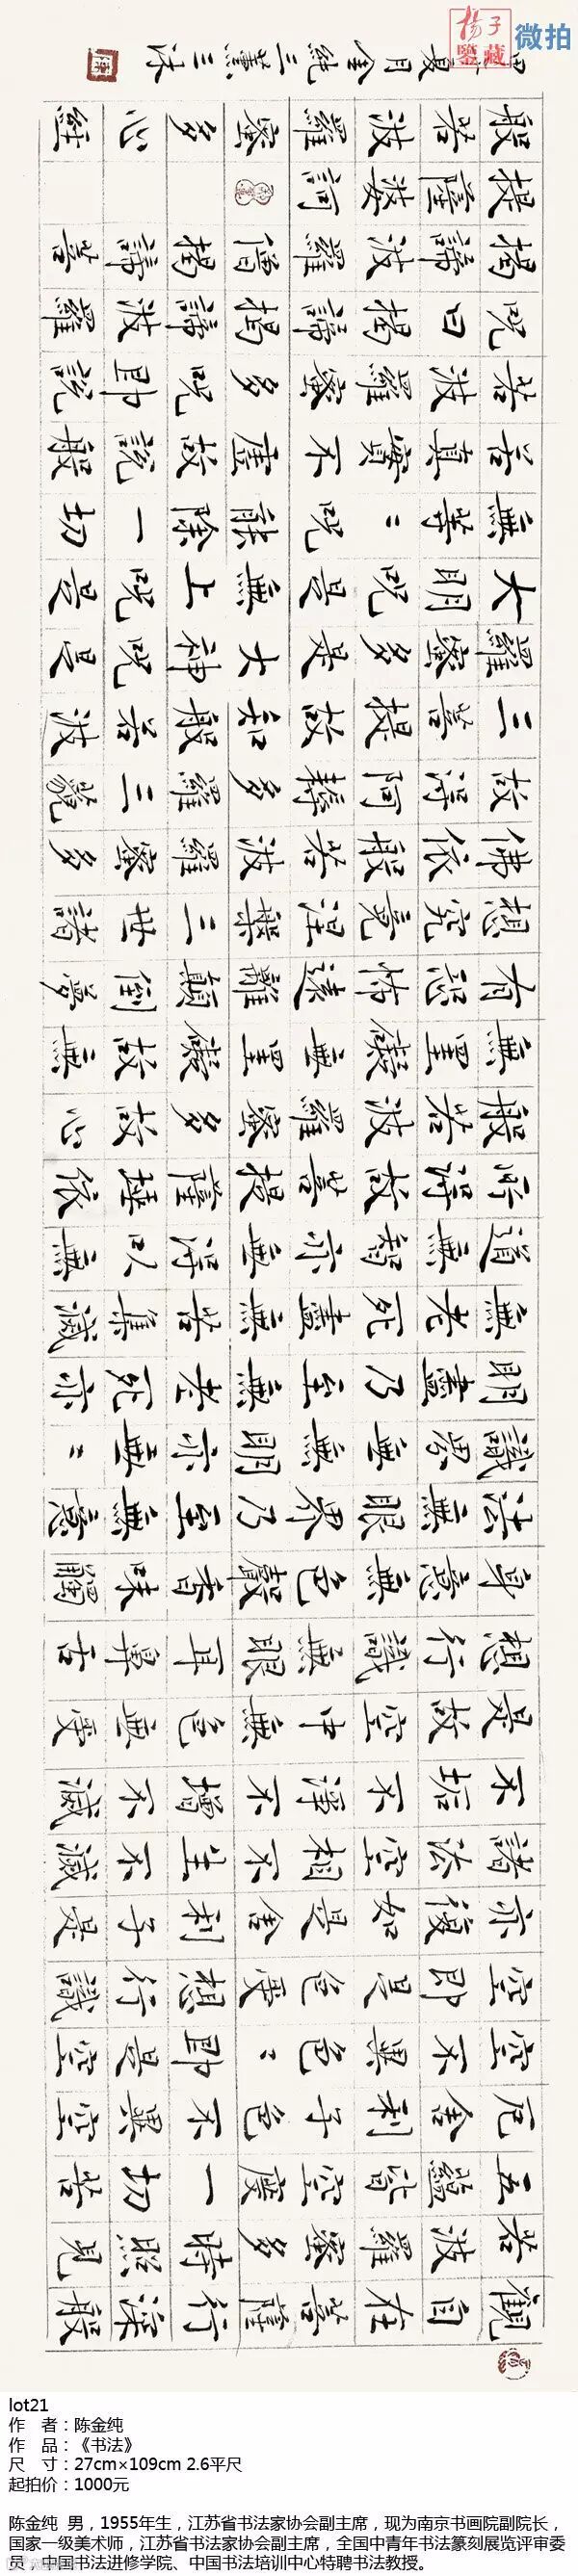 觀自在菩薩行深般
若波羅蜜多時照見
五蘊皆空度一切苦
厄舍利子色不異空
空不異色〻即是空
空即是色受想行識
亦復如是舍利子是
諸法空相不生不滅
不垢不淨不增不減
是故空中無色無受
想行識無眼耳鼻舌
身意無色聲香味觸
法無眼界乃至無意
識界無無明亦無〻
明盡乃至無老死亦
無老死盡無苦集滅
道無智亦無得以無
所得故菩提薩埵依
般若波羅蜜多故心
無罣礙無罣礙故無
有恐怖遠離顛倒夢
想究竟涅槃三世諸
佛依般若波羅蜜多
故得阿耨多羅三藐
三菩提故知般若波
羅蜜多是大神呪是
大明呪是無上呪是
無等〻呪能除一切
苦真實不虛故說般
若波羅蜜多呪即說
呪曰揭諦揭諦波羅
揭諦波羅僧揭諦菩
提薩婆訶
般若波羅蜜多心經
夏月金純三薰三沐
揚子鑒藏 微拍
lot21
作 者：陈金纯
作 品：《书法》
尺 寸：27cm×109cm 2.6平尺
起拍价：1000元
陈金纯 男，1955年生，江苏省书法家协会副主席，现为南京书画院副院长，
国家一级美术师，江苏省书法家协会副主席，全国中青年书法篆刻展览评审委
员，中国书法进修学院、中国书法培训中心特聘书法教授。